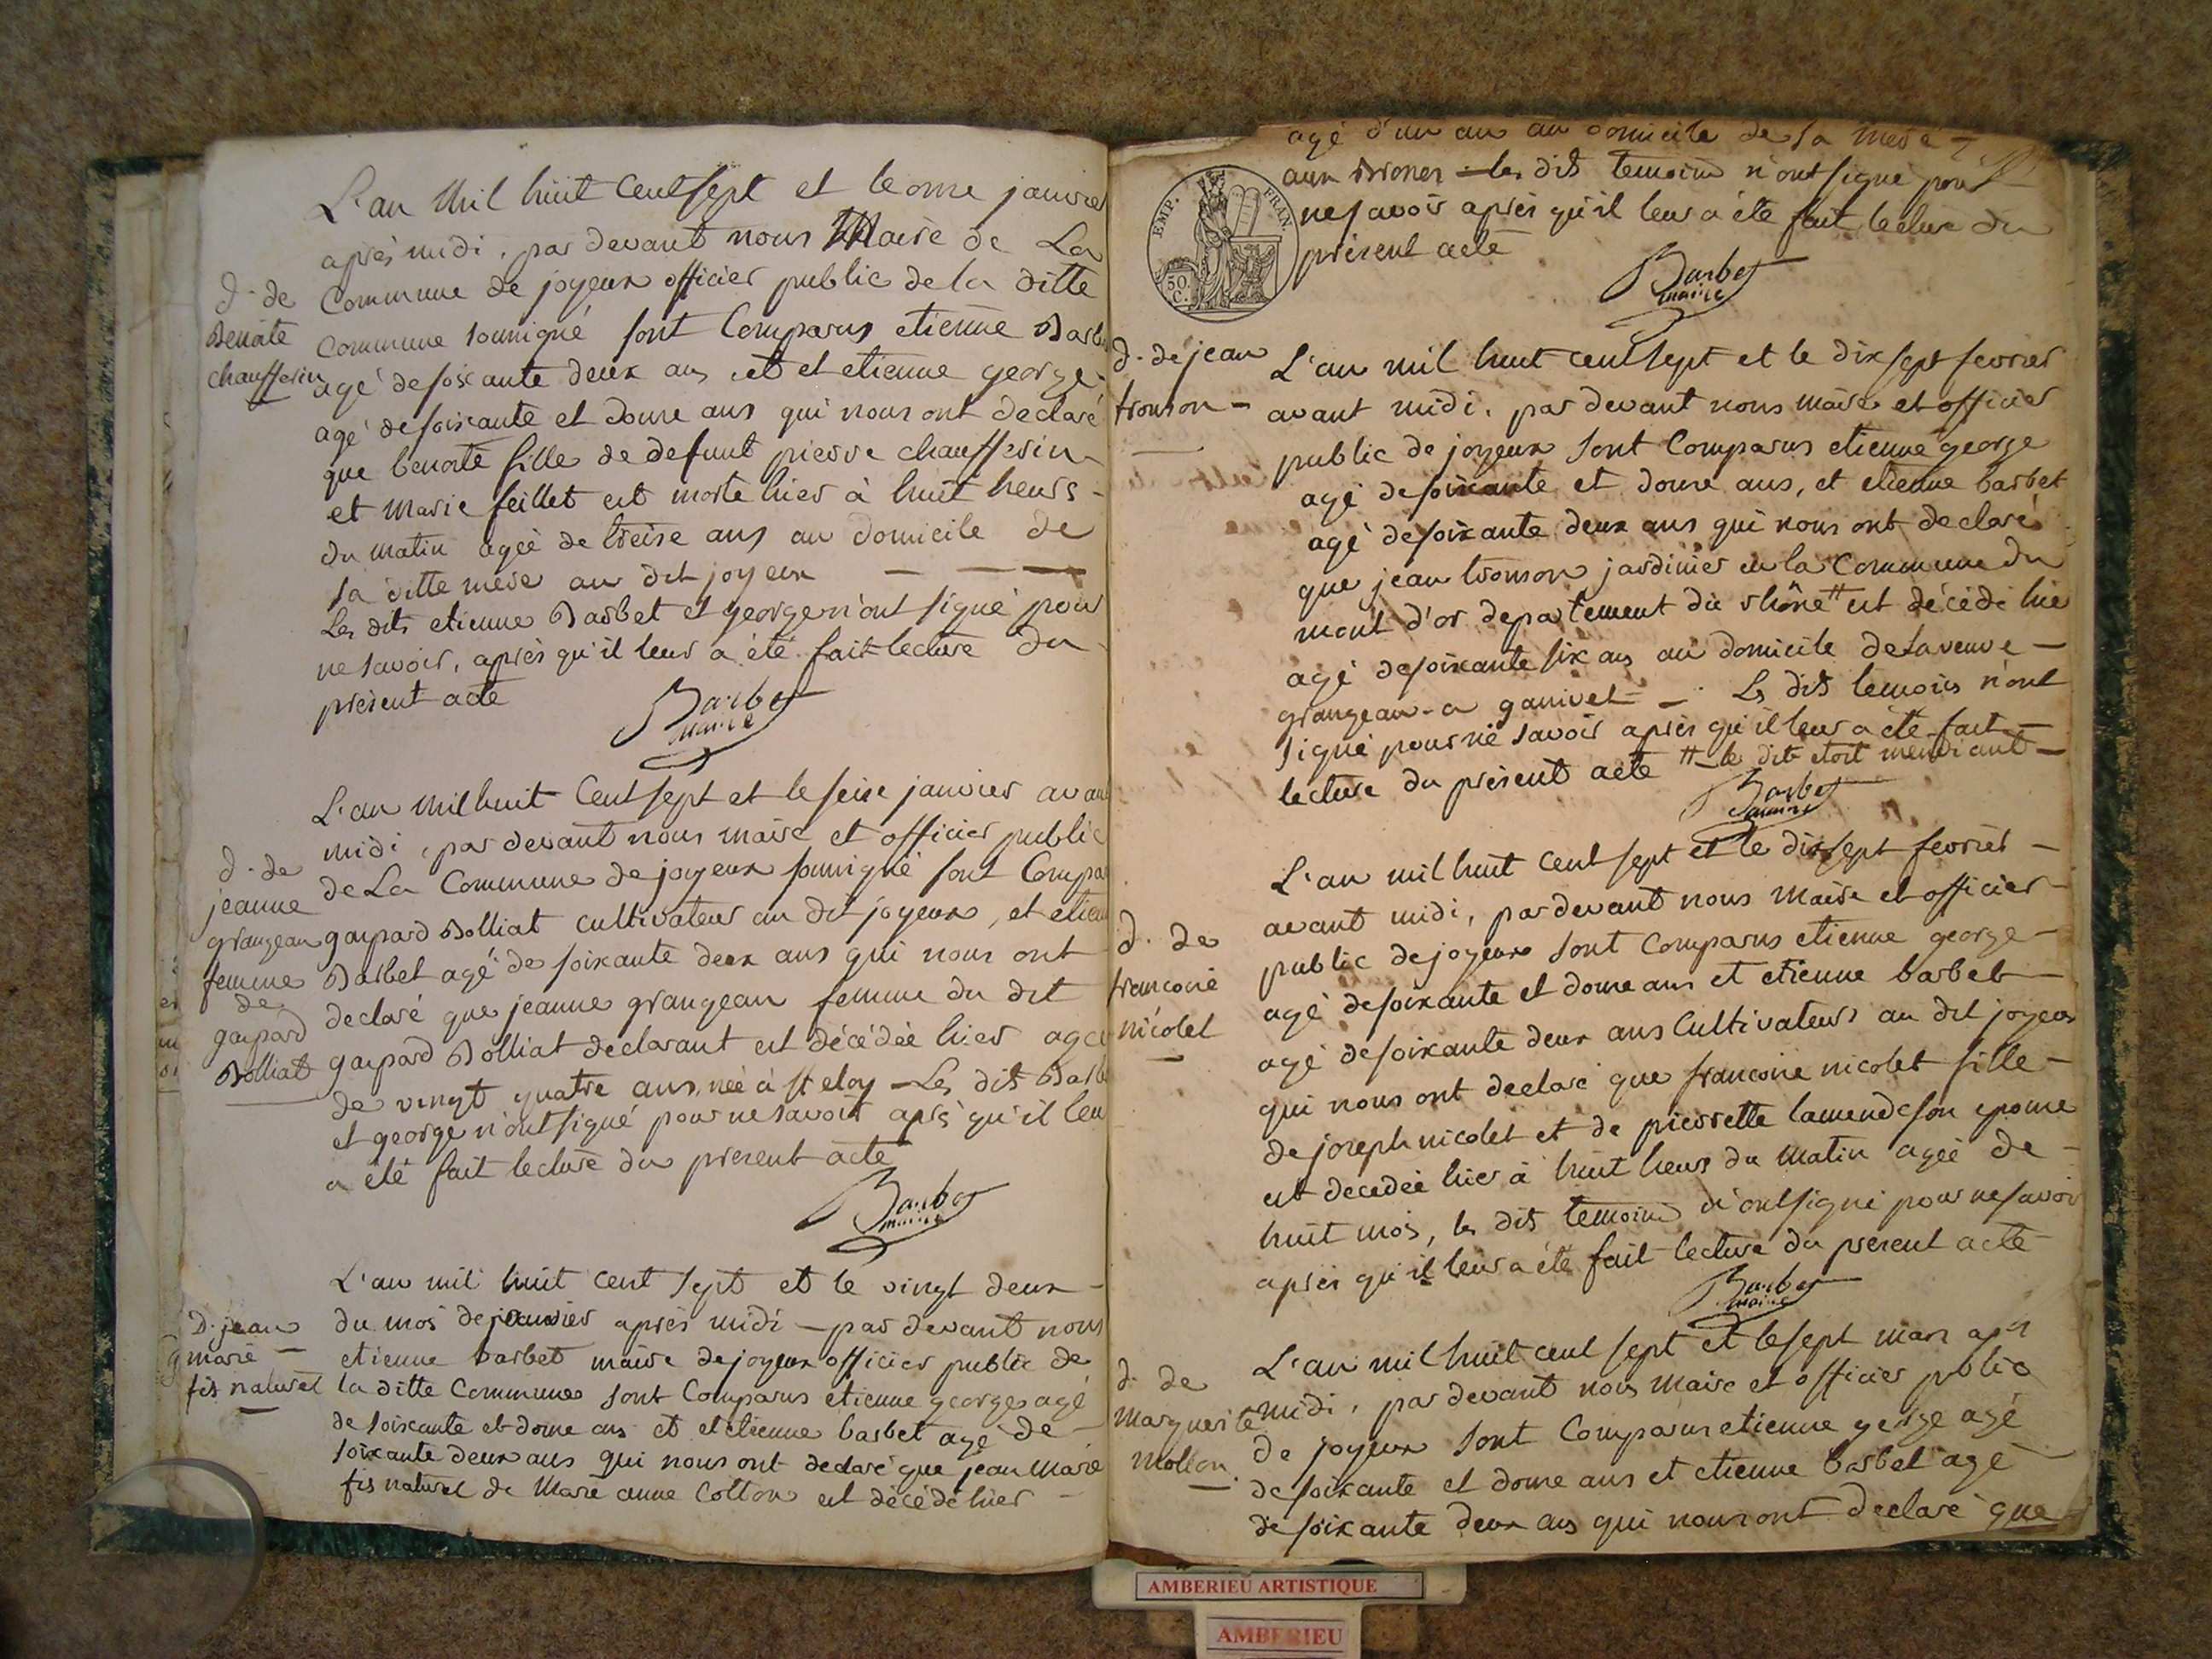 L'an mil huit cent sept et le onze janvier
après midi, par devant nous Maire de La
Commune de joyeux officier public de la ditte
commune soussigné sont Comparus etienne Barb
agé de soixante deux ans et et etienne george
agé de soixante et douze ans qui nous ont declaré
que benoite fille de defunt pierre chaufferin
et Marie feillet est morte hier à huit heurs
du matin agée de treize ans au domicile de
sa ditte mere au dit joyeux
Les dits etienne Barbet et george n'ont signé pour
ne savoir, après qu'il leur a été fait lecture du
présent acte
Barbet
maire
d. de
Benoite
chaufferin
L'an mil huit Cent sept et le seize janvier avan
midi, par devant nous maire et officier public
de La Commune de joyeux soussigné sont Compar
gaspard Bolliat cultivateur au dit joyeux, et etien
Barbet agé de soixante deux ans qui nous ont
declaré que jeanne grangean femme du dit
gaspard Bolliat declarant est décédée hier agee
de vingt quatre ans, née à st eloy – Les dits Barbe
et george n'ont signé pour ne savoir après qu'il leu
a été fait lecture du present acte
Barbet
maire
d. de
jeanne
grangean
femme
de
gaspard
Bolliat
L'an mil huit cent sept et le vingt deux
du mois de janvier après midi – par devant nous
etienne barbet maire de joyeux officier public de
la ditte Commune sont Comparus etienne george agé
de soixante et douze ans et et etienne barbet agé de
soixante deux ans qui nous ont declaré que jean Marie
fils naturel de Marie anne Cotton est décédé hier
D. jean
marie
fils naturel
agé d'un an au domicile de sa mere
aux Brones – les dits temoins n'ont signé pour
ne savoir après qu'il leur a été fait lecture du
présent acte
Barbet
maire
EMP. FRAN.
50
C.
d. de jean
tronson
L'an mil huit cent sept et le dix sept fevrier
avant midi, par devant nous maire et officier
public de joyeux sont Comparus etienne george
agé de soixante et douze ans, et etienne barbet
agé de soixante deux ans qui nous ont declaré
que jean tronson jardinier en la Commune du
mont d'or departement du rhône # est décédé hie
agé de soixante six ans au domicile de la veuve
grangean a ganivet – Les dits temoins n'ont
signé pour ne savoir après qu'il leur a été fait
lecture du présent acte # le dit etoit mendiant
Barbet
maire
L'an mil huit cent sept et le dix sept fevrier
avant midi, par devant nous Maire et officier
public de joyeux sont Comparus etienne george
agé de soixante et douze ans et etienne barbet
agé de soixante deux ans Cultivateurs au dit joyeux
qui nous ont declaré que francoise nicolet fille
de joseph nicolet et de pierrette lamende son epouse
est decedée hier à huit heurs du Matin agée de
huit mois, les dits temoins n'ont signé pour ne savoir
après qu'il leur a été fait lecture du present acte
Barbet
maire
d. de
francoise
nicolet
L'an mil huit cent sept et le sept mars apr
midi, par devant nous Maire et officier public
de joyeux sont Comparus etienne george agé
de soixante et douze ans et etienne barbet agé
de soixante deux ans qui nous ont declaré que
d. de
Marguerite
Mollon
AMBERIEU ARTISTIQUE
AMBERIEU